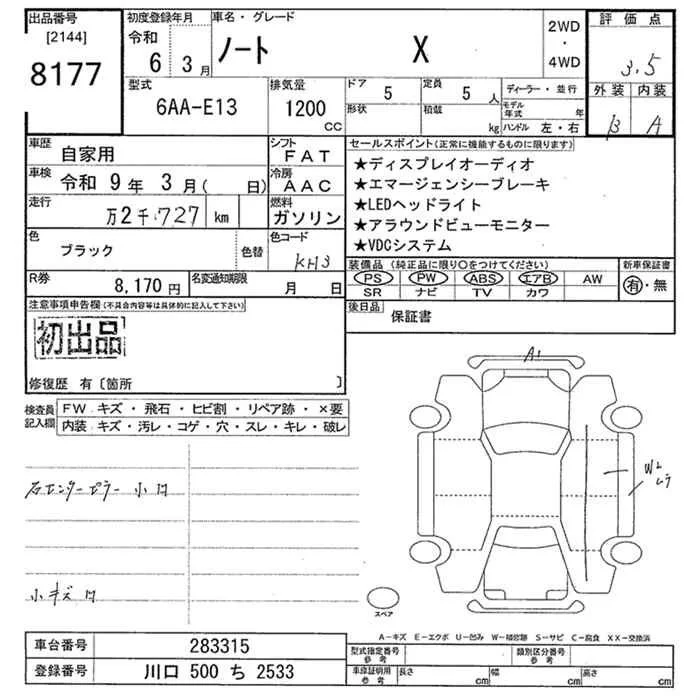 出品番号 [2144] 8177
初度登録年月 令和 6 3月
車名・グレード ノート X
2WD・4WD
評価点 3.5
型式 6AA-E13
排気量 1200 CC
ドア 5
定員 5 人
形状
積載 kg
ディーラー・並行
モデル年式 年
ハンドル 左・右
外装 B
内装 A
車歴 自家用
シフト FAT
車検 令和 9年 3月( 日)
冷房 AAC
走行 万2千727 km
燃料 ガソリン
色 ブラック 色替
色コード KH3
R券 8,170円
名変通知期限 月 日
セールスポイント(正常に機能するものに限ります)
★ディスプレイオーディオ
★エマージェンシーブレーキ
★LEDヘッドライト
★アラウンドビューモニター
★VDCシステム
装備品(純正品に限り○をつけてください)
PS PW ABS エアB AW
SR ナビ TV カワ
新車保証書 有・無
後日品 保証書
注意事項申告欄(不具合内容等は具体的に記入して下さい)
初出品
修復歴 有〔箇所 〕
検査員記入欄
FW キズ・飛石・ヒビ割・リペア跡・×要
内装 キズ・汚レ・コゲ・穴・スレ・キレ・破レ
A1
W2
ムラ
右センターピラー小
小キズ
スペア
A-キズ E-エクボ U-凹み W-補修跡 S-サビ C-腐食 XX-交換済
車台番号 283315
登録番号 川口 500 ち 2533
型式指定番号 参考
類別区分番号 参考
車庫証明用 参考
長さ cm
幅 cm
高さ cm